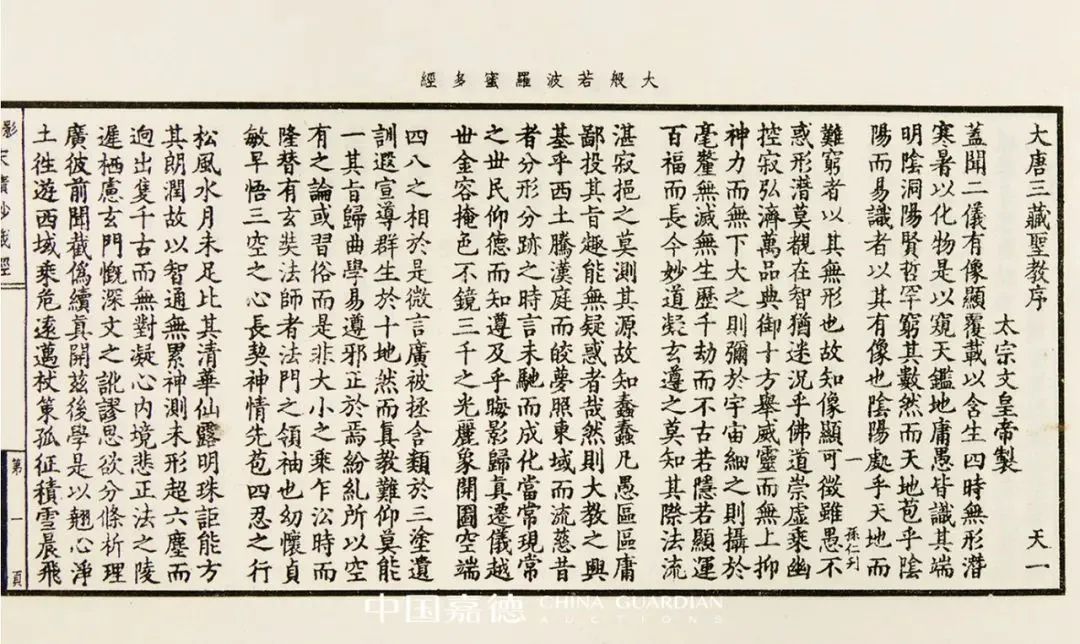 大般若波羅蜜多經
大唐三藏聖教序 天一
太宗文皇帝製
蓋聞二儀有像顯覆載以含生四時無形潛
寒暑以化物是以窺天鑑地庸愚皆識其端
明陰洞陽賢哲罕窮其數然而天地苞乎陰
陽而易識者以其有像也陰陽處乎天地而
一 孫仁刋
難窮者以其無形也故知像顯可徵雖愚不
惑形潛莫覩在智猶迷況乎佛道崇虛乘幽
控寂弘濟萬品典御十方舉威靈而無上抑
神力而無下大之則彌於宇宙細之則攝於
毫釐無滅無生歷千劫而不古若隱若顯運
百福而長今妙道凝玄遵之莫知其際法流
湛寂挹之莫測其源故知蠢蠢凡愚區區庸
鄙投其旨趣能無疑惑者哉然則大教之興
基乎西土騰漢庭而皎夢照東域而流慈昔
者分形分跡之時言未馳而成化當常現常
之世民仰德而知遵及乎晦影歸眞遷儀越
世金容掩色不鏡三千之光麗象開圖空端
四八之相於是微言廣被拯含類於三塗遺
訓遐宣導群生於十地然而眞教難仰莫能
一其旨歸曲學易遵邪正於焉紛糺所以空
有之論或習俗而是非大小之乘乍㳂時而
隆替有玄奘法師者法門之領袖也幼懷貞
敏早悟三空之心長契神情先苞四忍之行
松風水月未足比其清華仙露明珠詎能方
其朗潤故以智通無累神測未形超六塵而
逈出隻千古而無對凝心內境悲正法之陵
遲栖慮玄門慨深文之訛謬思欲分條析理
廣彼前聞截僞續眞開茲後學是以翹心淨
土徃遊西域乘危遠邁杖策孤征積雪晨飛
影宋磧砂藏經 第一頁
中国嘉德 CHINA GUARDIAN
AUCTIONS